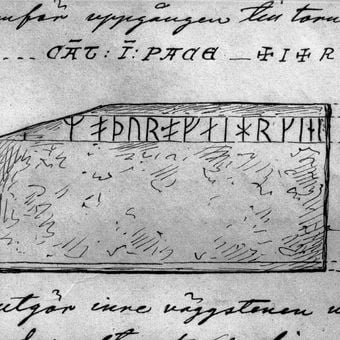 uppgången till torn
... CĀT : Ī : PACE — ✠I✠R
ᛘᚯᚦᚢᚱᚯᚠᚾᛁᚼᚱᚴᛁ
utgör inre väggstenen